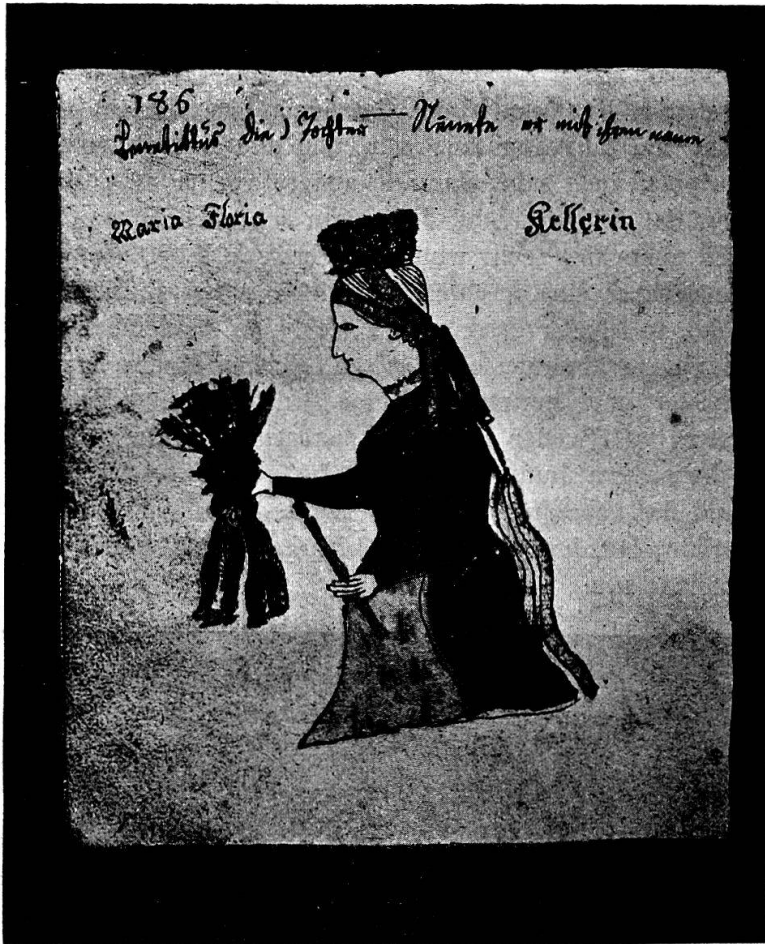 186
Benediktus die) Tochter — Nenete er mit ihren namen
Maria Floria Kellerin